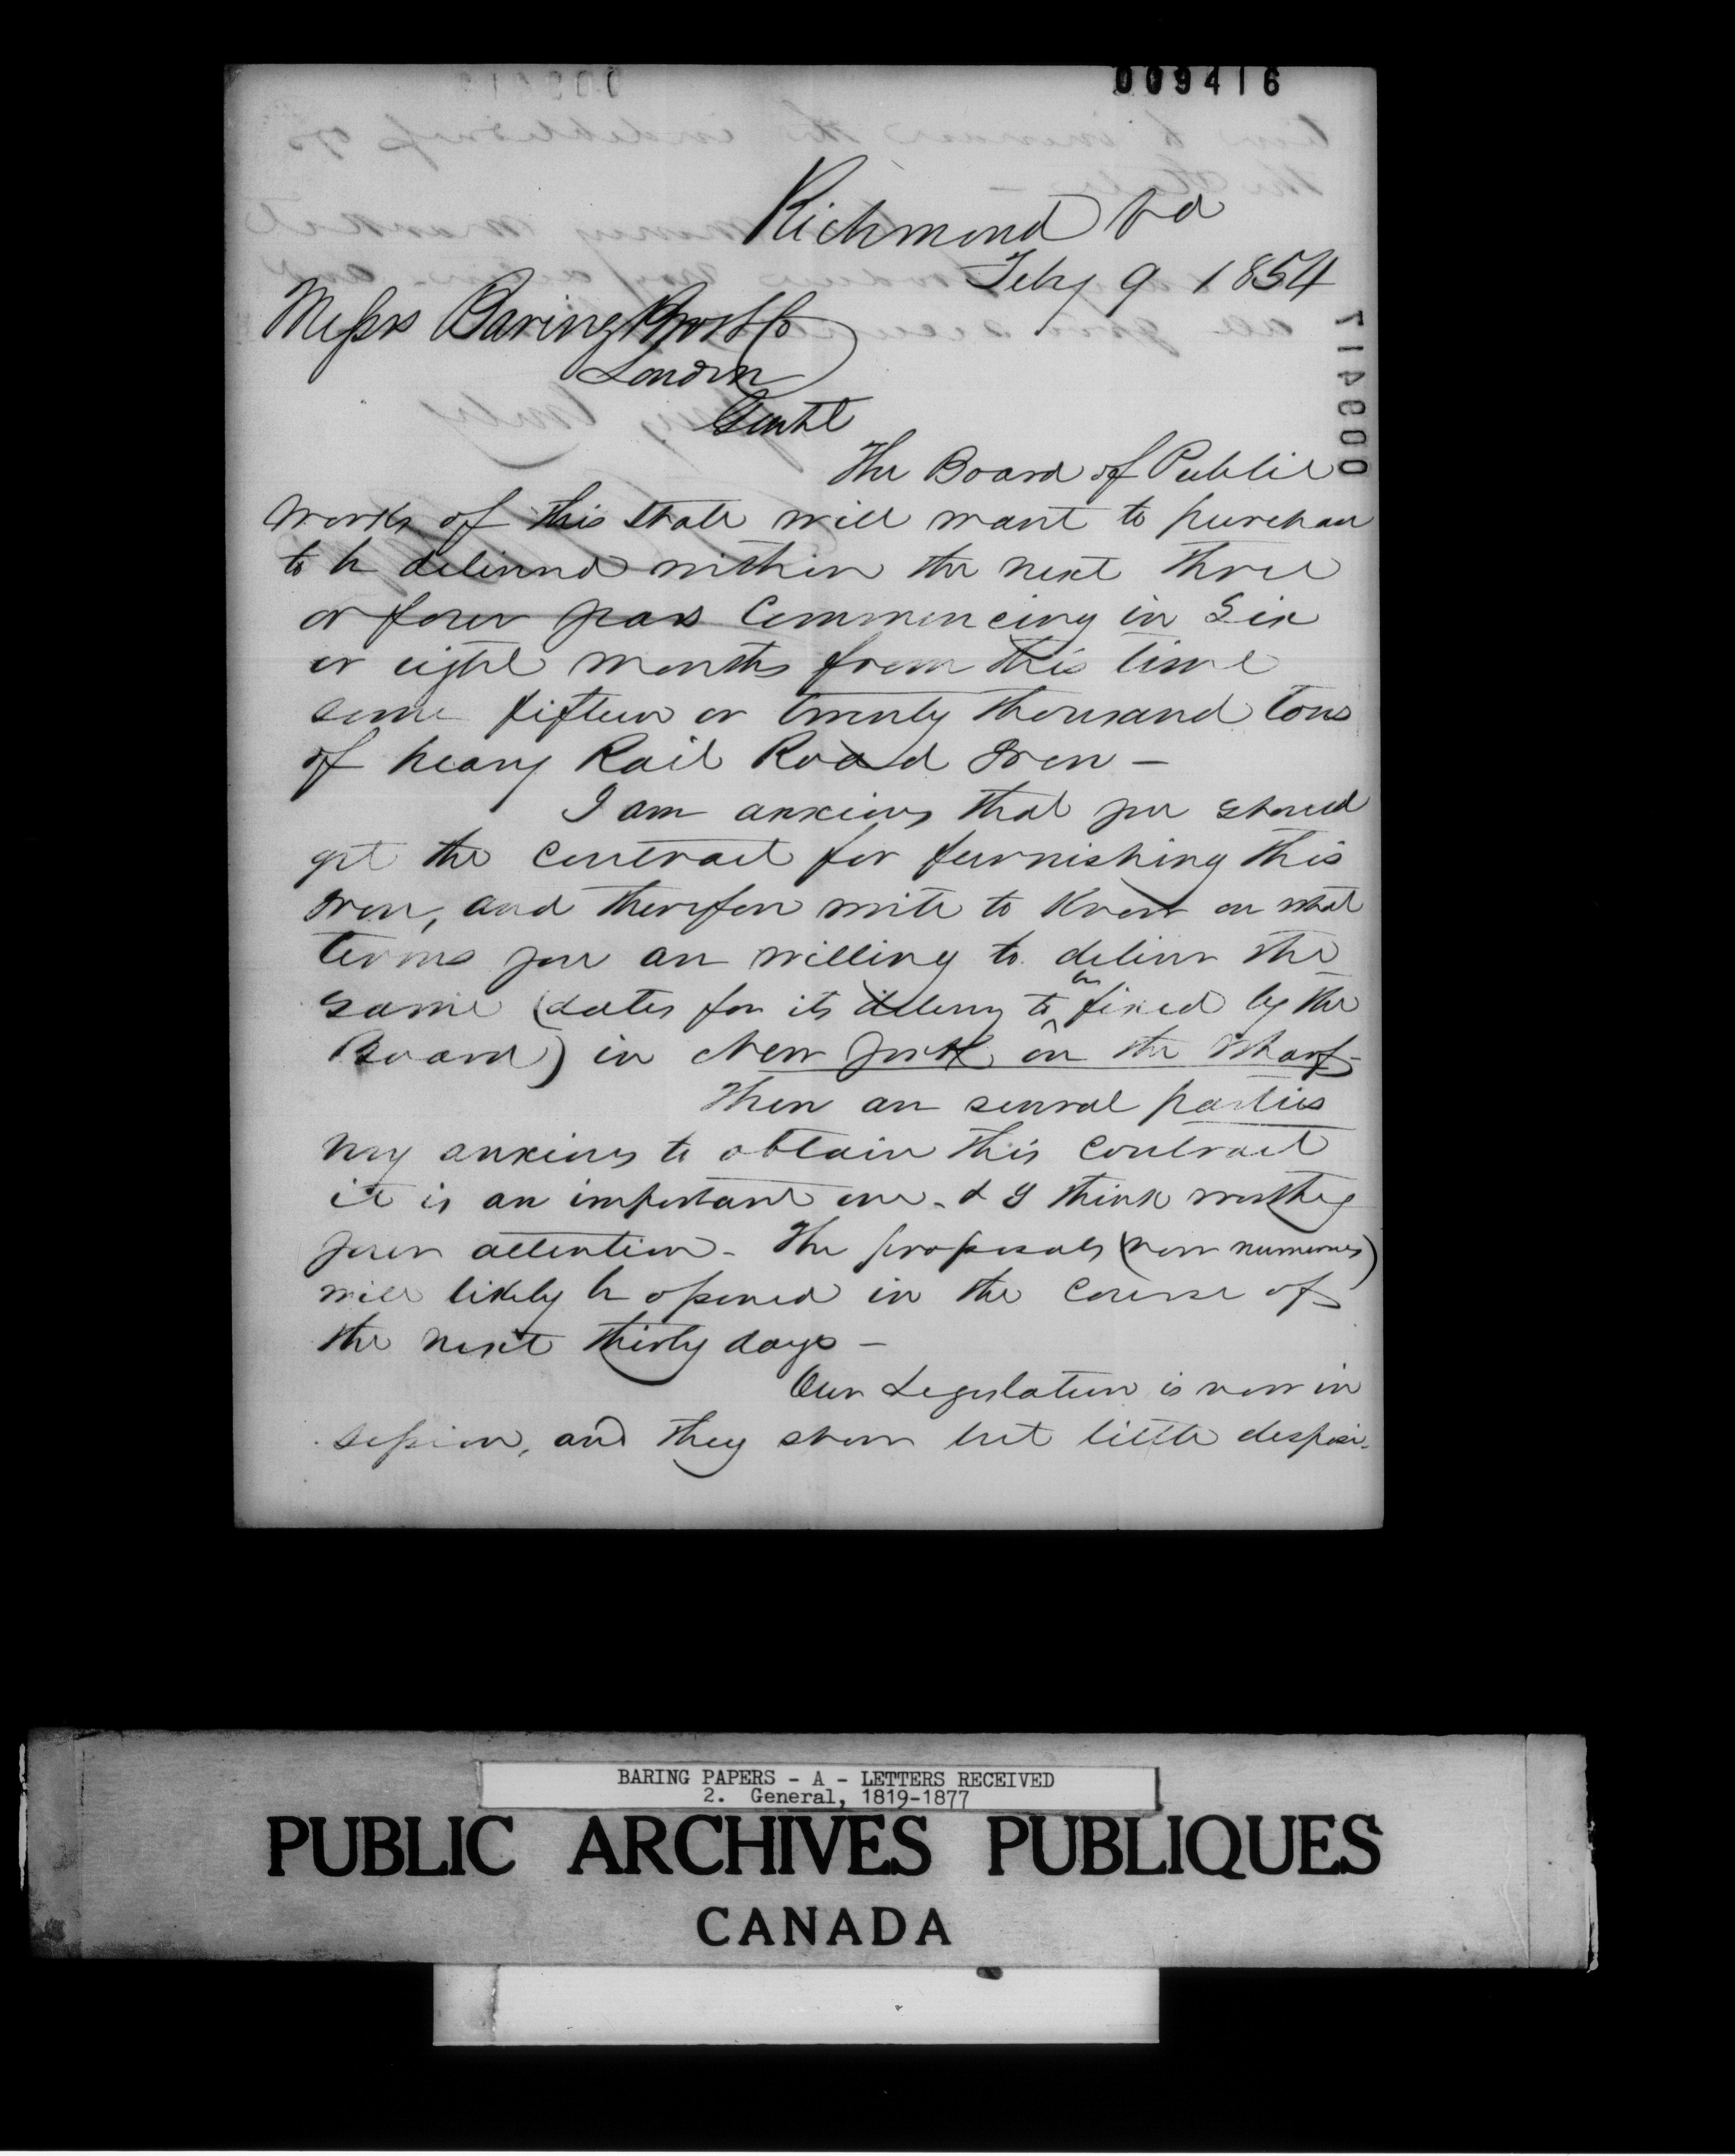 009416
Richmond Va
Feby 9 1854
Messrs Baring Bros & Co
London
Gentl
009417
The Board of Public
Works of this State will want to purchase
to be delivered within the next three
or four years Commencing in Six
or eight months from this time
some fifteen or twenty thousand tons
of heavy Rail Road Iron —
I am anxious that you should
get the contract for furnishing this
Iron, and therefore write to know on what
terms you are willing to deliver the
same (dates for its delivery to be fixed by the
Board) in New York on the Wharf -
There are several parties
very anxious to obtain this contract
it is an important one - & I think worthy
your attention - The proposals (now numerous)
will likely be opened in the course of
the next thirty days —
Our Legislature is now in
session, and they show but little disposi-
BARING PAPERS - A - LETTERS RECEIVED
2. General, 1819-1877
PUBLIC ARCHIVES PUBLIQUES
CANADA